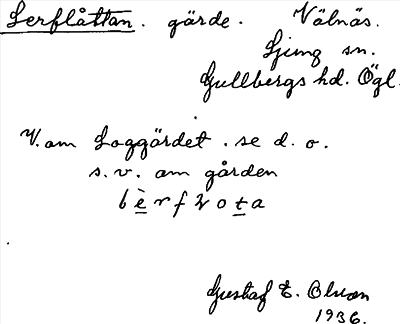 Lerflåttan. gärde. Välnäs.
Ljung sn.
Gullbergs hd. Ögl.
V. om Loggärdet. se d. o.
s. v. om gården
Gustaf E. Olson
1936.